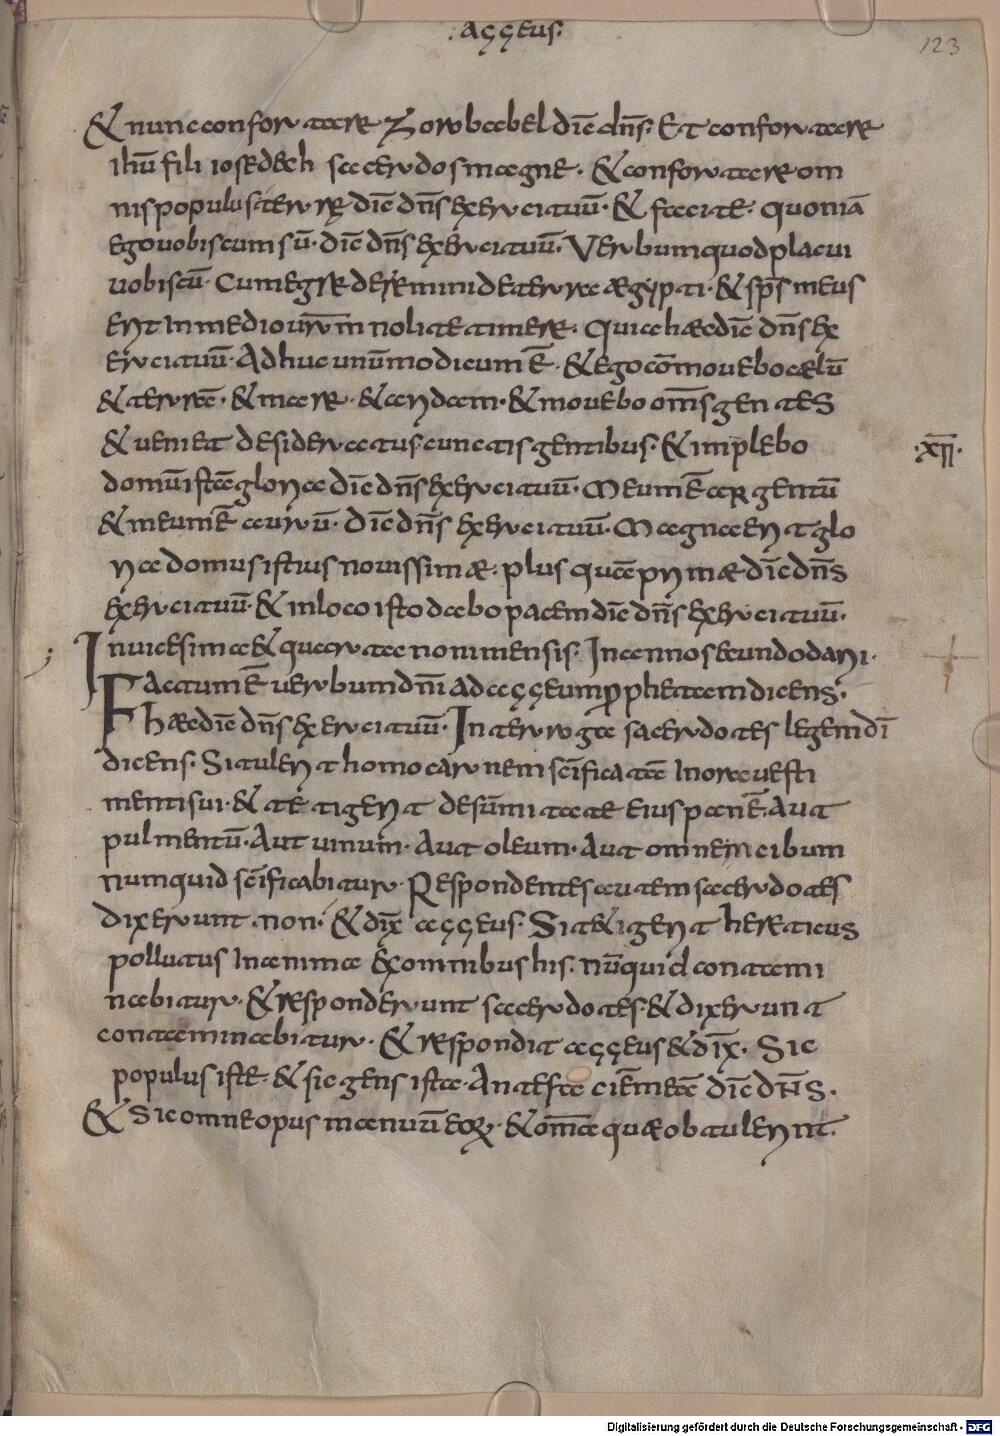 ·aggeus·
123
& nunc confortare Zorobabel dic̄ dn̄s· Et confortare
ihū fili iosedech sacerdos magne· & confortare om
nis populus terrę dic̄ dn̄s exercituū· & facite· quoniā
ego uobiscum sū· dic̄ dn̄s exercituū· Verbum quod placui
uobiscū· Cum egrederemini de terra aegypti· & sp̄s meus
erit In medio ur̄m nolite timere· Quia haec dic̄ dn̄s ex
ercituū· Adhuc unū modicum ē· & ego cōmouebo caelū
& terrā· & mare· & aridam· & mouebo om̄s gentes
& ueniet desideratus cunctis gentibus· & implebo
domū istā gloria dic̄ dn̄s exercituū· Meum ē argentū
& meum ē aurū· dic̄ dn̄s exercituū· Magna erit glo
ria domus istius nouissimae· plus quā primae dic̄ dn̄s
exercituū· & in loco isto dabo pacem dic̄ dn̄s exercituū·
·xīī·
In uicesima & quarta noni mensis· In anno secundo darii·
Factum ē uerbum dn̄i ad aggeum ꝓphetam dicens·
haec dic̄ dn̄s exercituū· Interroga sacerdotes legem dī
dicens· Si tulerit homo carnem sc̄ificatā In ora uesti
menti sui· & tetigerit de sūmitate eius panē· Aut
pulmentū· Aut uinum· Aut oleum· Aut omnem cibum
numquid sc̄ificabitur· Respondentes autem sacerdotes
dixerunt· non· & dix̄ aggeus· Si tetigerit hereticus
pollutus In anima ex omnibus his· nūquid contami
nabitur· & responderunt sacerdotes· & dixerunt
contaminabitur· & respondit aggeus & dix̄· Sic
populus iste· & sic gens ista· Ante faciē meā dic̄ dn̄s·
& Sic omne opus manuū eoꝝ· & om̄a quae obtulerint·
Digitalisierung gefördert durch die Deutsche Forschungsgemeinschaft - DFG